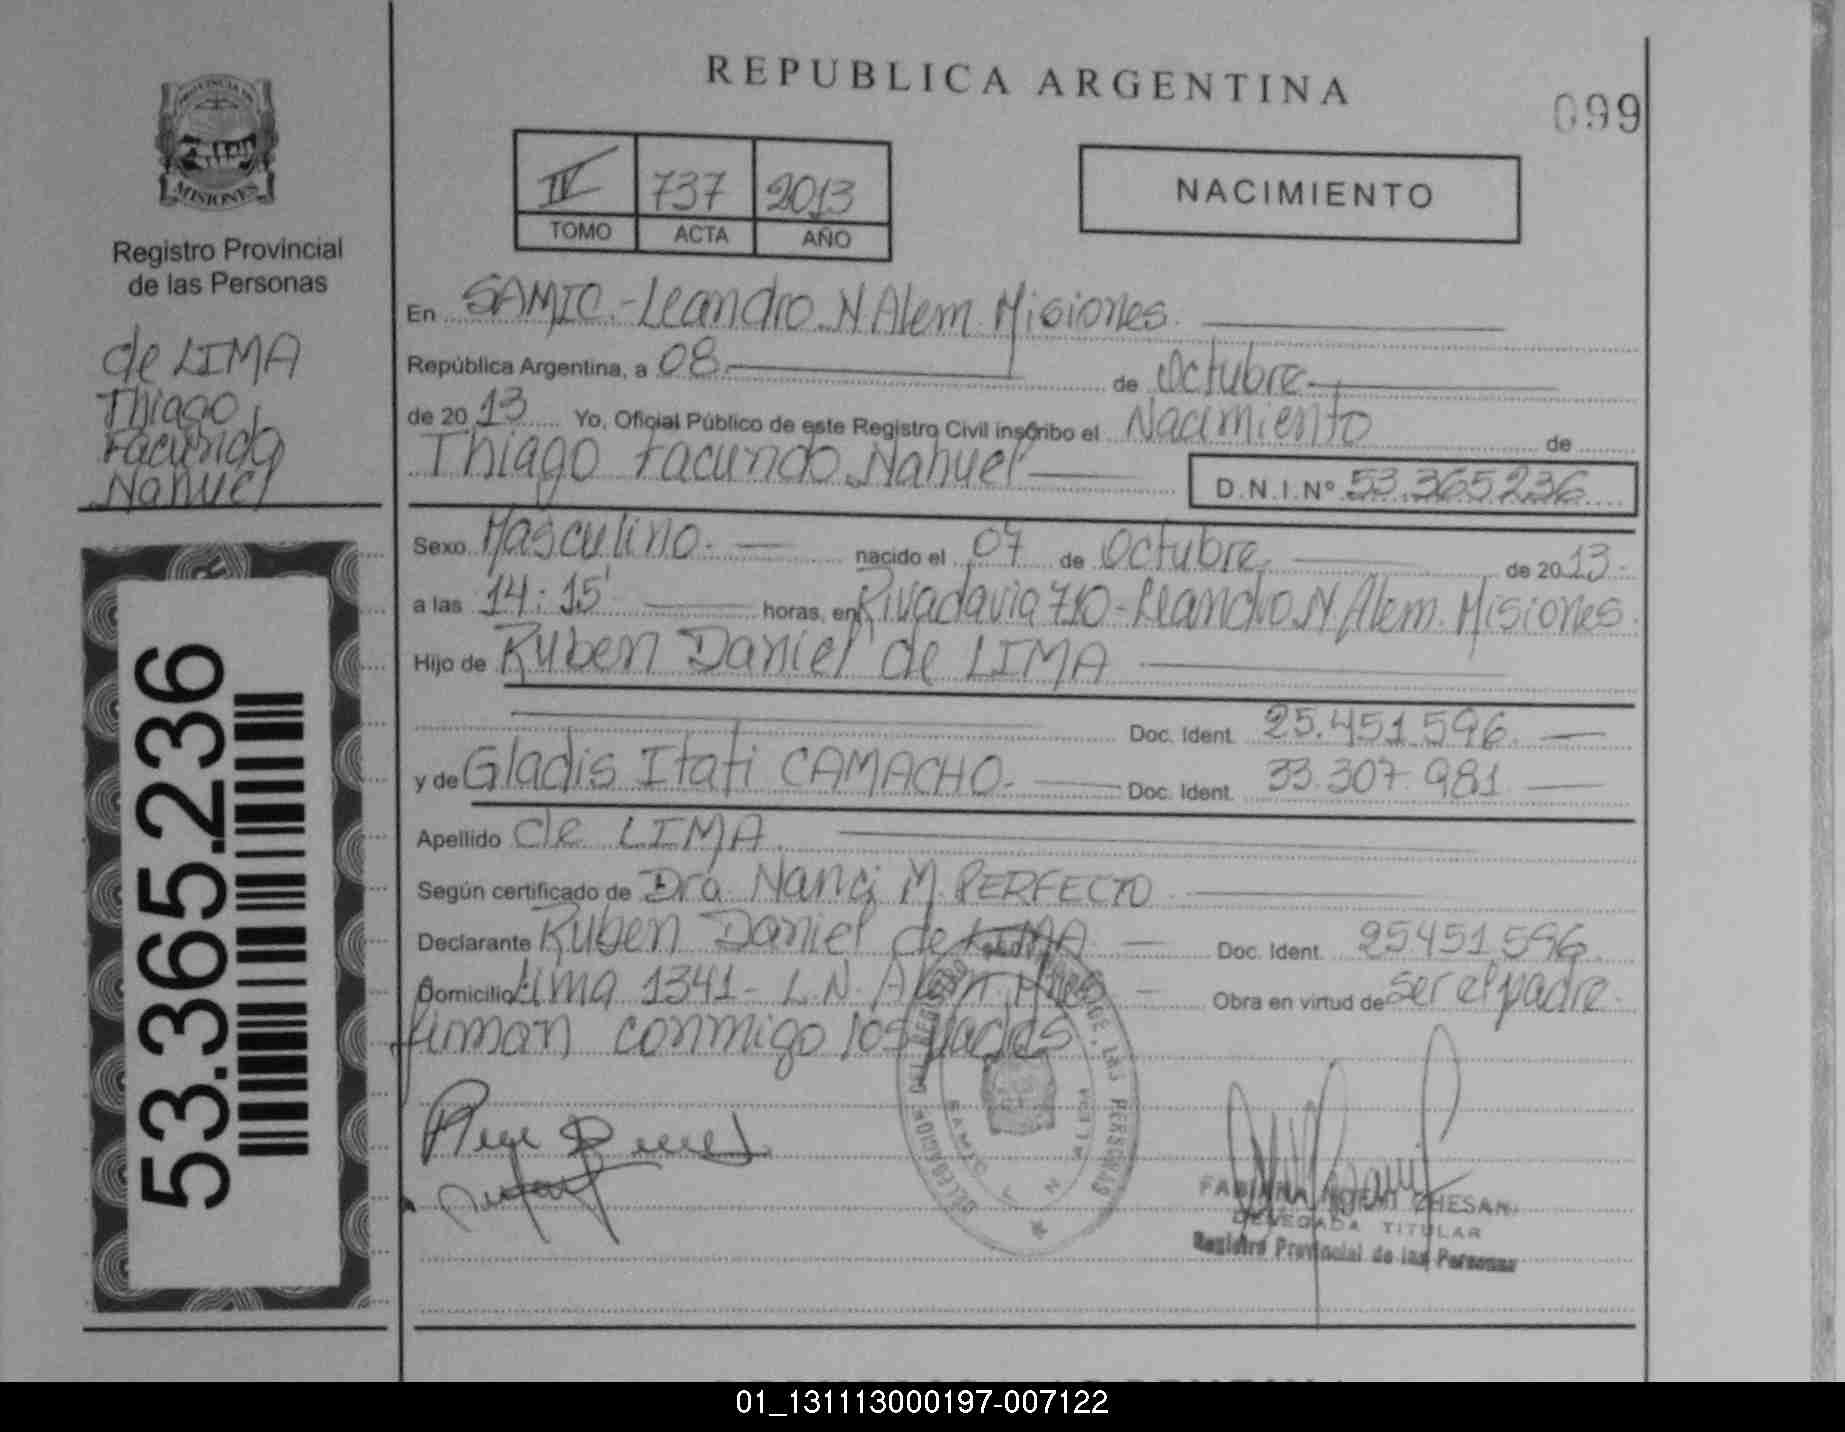 REPUBLICA ARGENTINA
099
PROVINCIA DE
MISIONES
Registro Provincial
de las Personas
IV 737 2013
TOMO ACTA AÑO
NACIMIENTO
de LIMA
Thiago
Facundo
Nahuel
En SAMIC.-Leandro N Alem. Misiones.
República Argentina, a 08 de Octubre
de 20 13 Yo, Oficial Público de este Registro Civil inscribo el Nacimiento de
Thiago Facundo Nahuel D.N.I.Nº 53.365.236
Sexo Masculino. nacido el 07 de Octubre de 2013.
a las 14:15' horas, en Rivadavia 710-Leandro N Alem. Misiones.
Hijo de Ruben Daniel de LIMA
Doc. Ident. 25.451.596.
y de Gladis Itati CAMACHO. Doc. Ident. 33.307.981
Apellido de LIMA.
Según certificado de Dra. Nanci M. PERFECTO
Declarante Ruben Daniel de LIMA Doc. Ident. 25451596.
Domicilio Lima 1341- L.N. Alem Obra en virtud de ser el padre.
firman conmigo los padres
53.365.236
DE LAS PERSONAS
SAMIC
L N ALEM
FABIANA NOEMI
DELEGADA TITULAR
Registro Provincial de las Personas
01_131113000197-007122